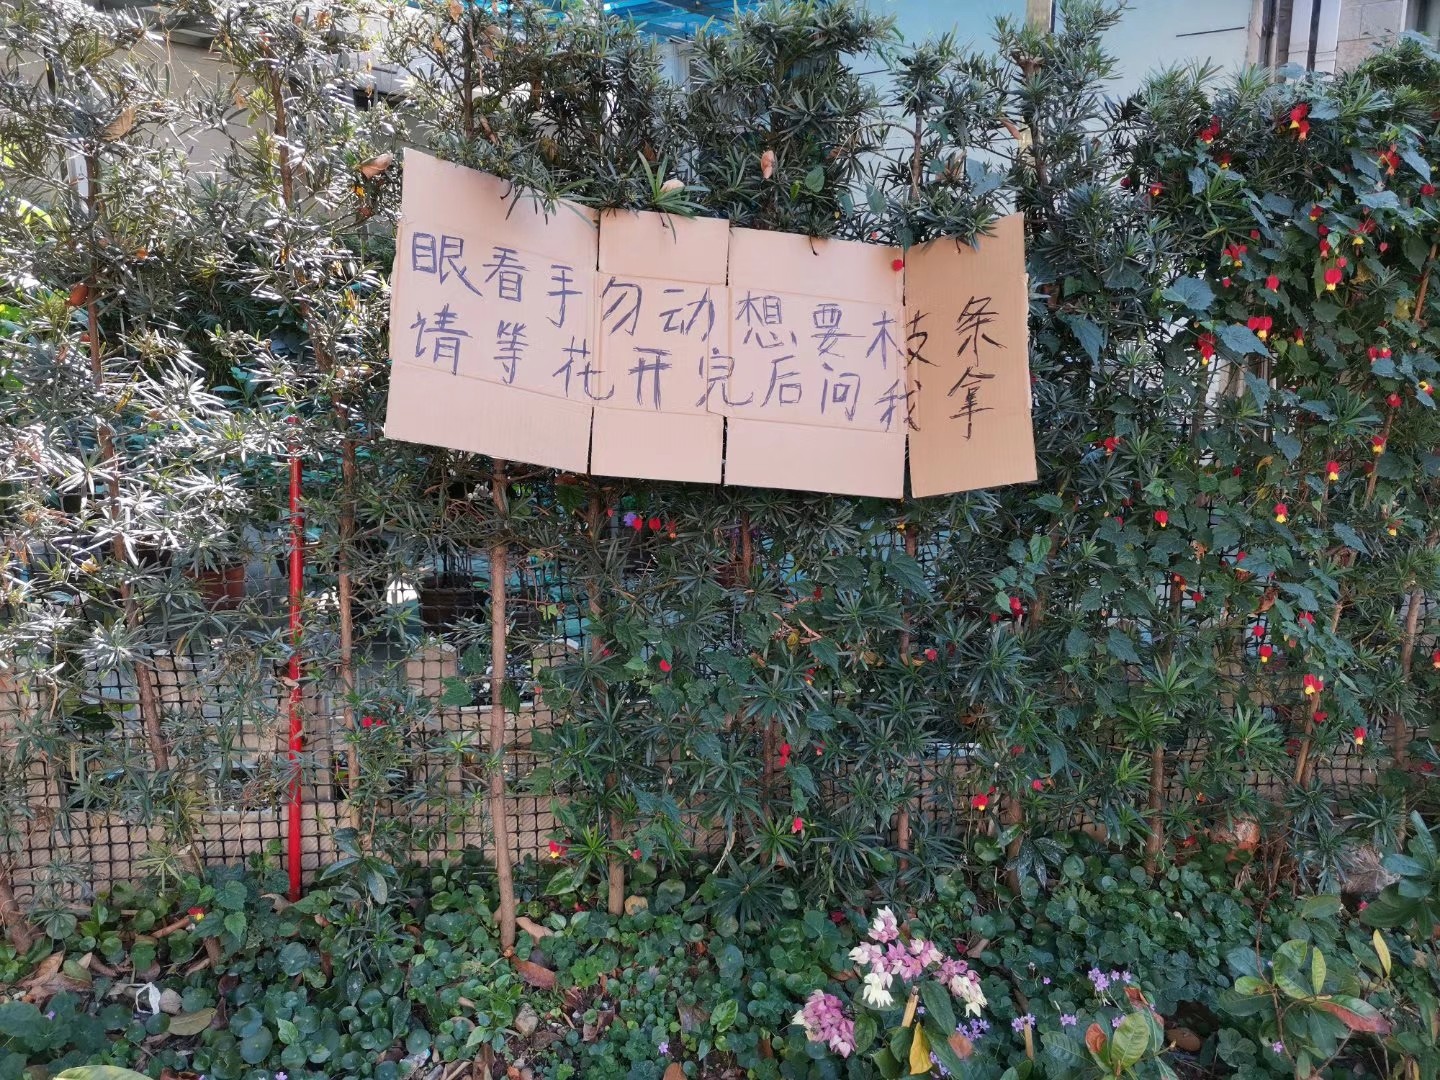 眼看手勿动想要枝条
请等花开完后问我拿